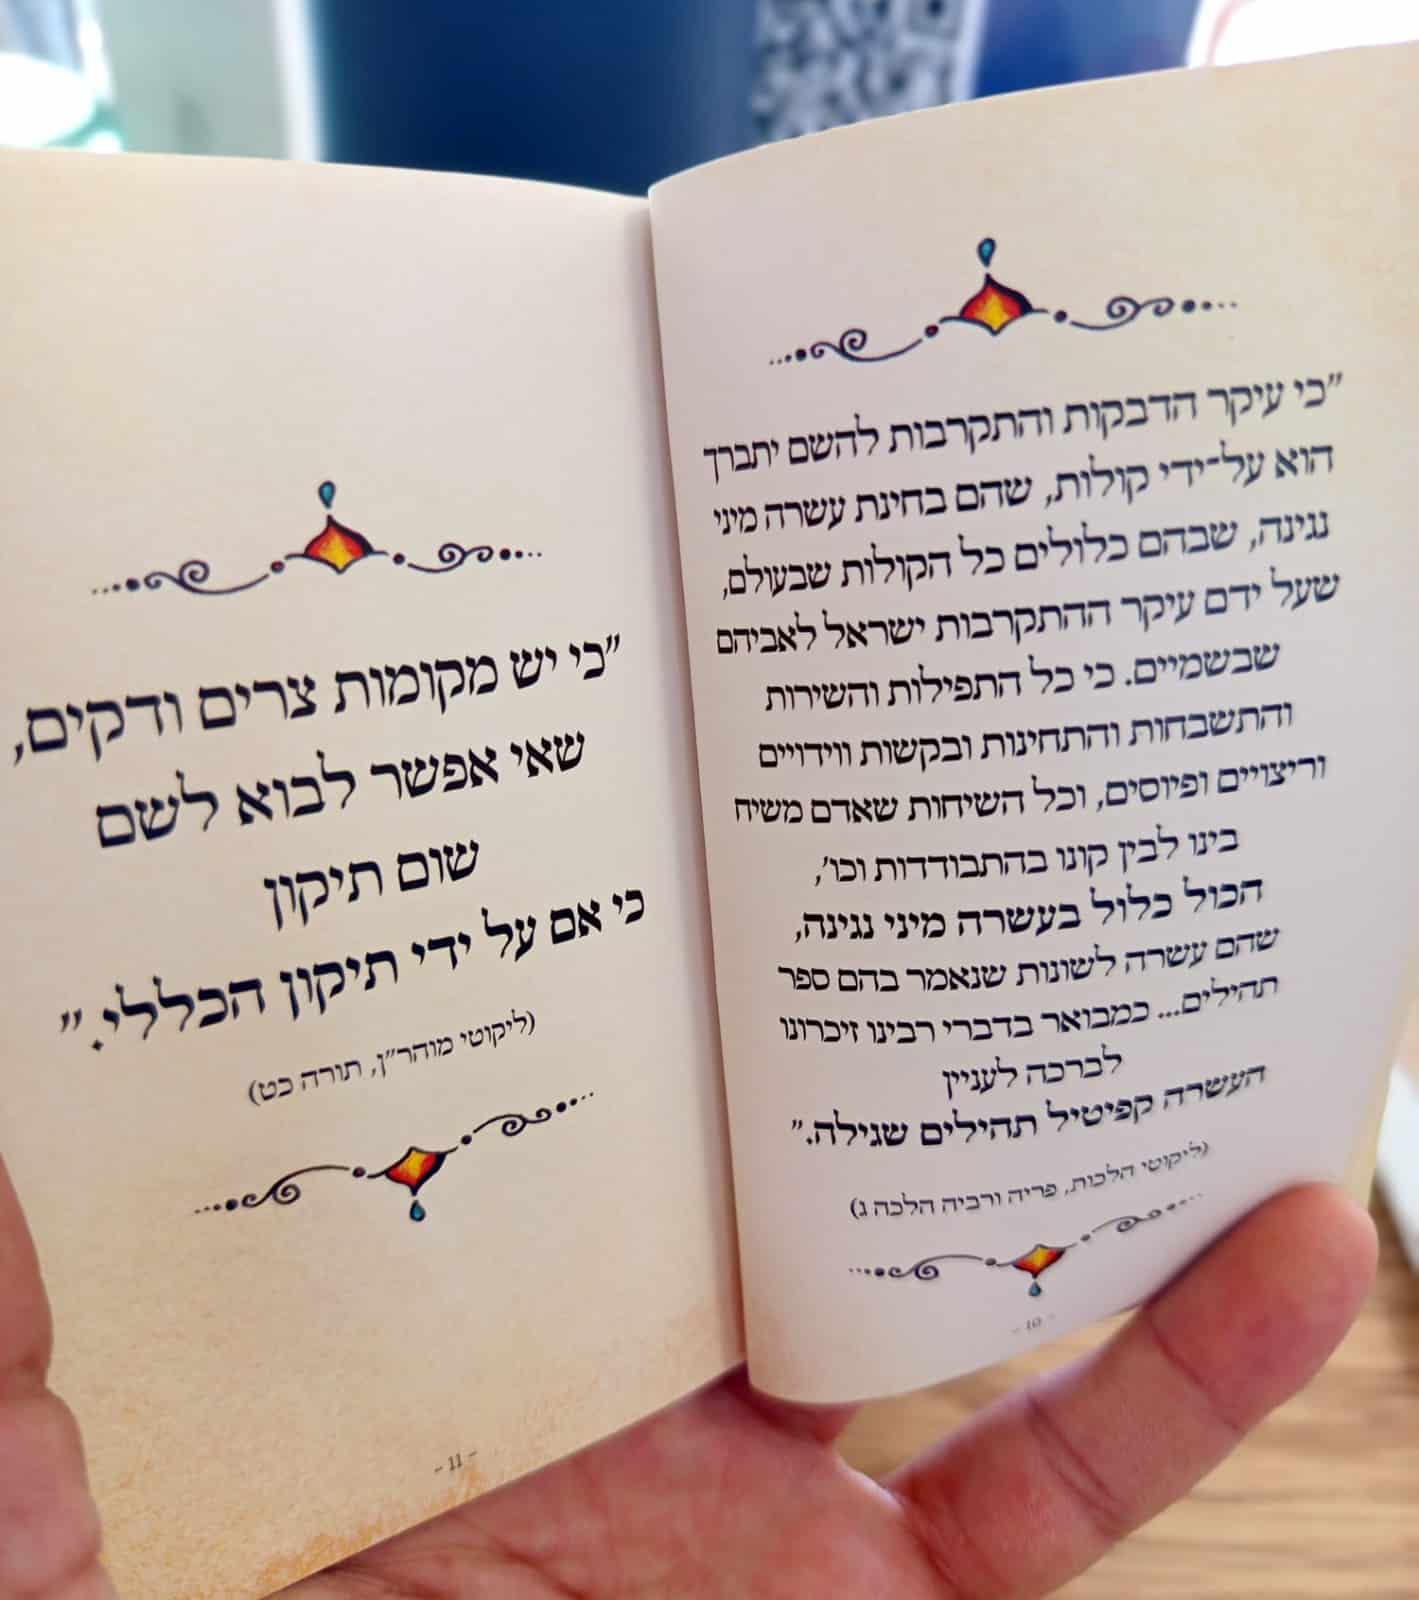 "כי עיקר הדבקות והתקרבות להשם יתברך
הוא על־ידי קולות, שהם בחינת עשרה מיני
נגינה, שבהם כלולים כל הקולות שבעולם,
שעל ידם עיקר ההתקרבות ישראל לאביהם
שבשמיים. כי כל התפילות והשירות
והתשבחות והתחינות ובקשות ווידויים
וריצויים ופיוסים, וכל השיחות שאדם משיח
בינו לבין קונו בהתבודדות וכו',
הכול כלול בעשרה מיני נגינה,
שהם עשרה לשונות שנאמר בהם ספר
תהילים... כמבואר בדברי רבינו זיכרונו
לברכה לעניין
העשרה קפיטיל תהילים שגילה."
(ליקוטי הלכות, פריה ורביה הלכה ג)
- 10 -
"כי יש מקומות צרים ודקים,
שאי אפשר לבוא לשם
שום תיקון
כי אם על ידי תיקון הכללי."
(ליקוטי מוהר"ן, תורה כט)
- 11 -